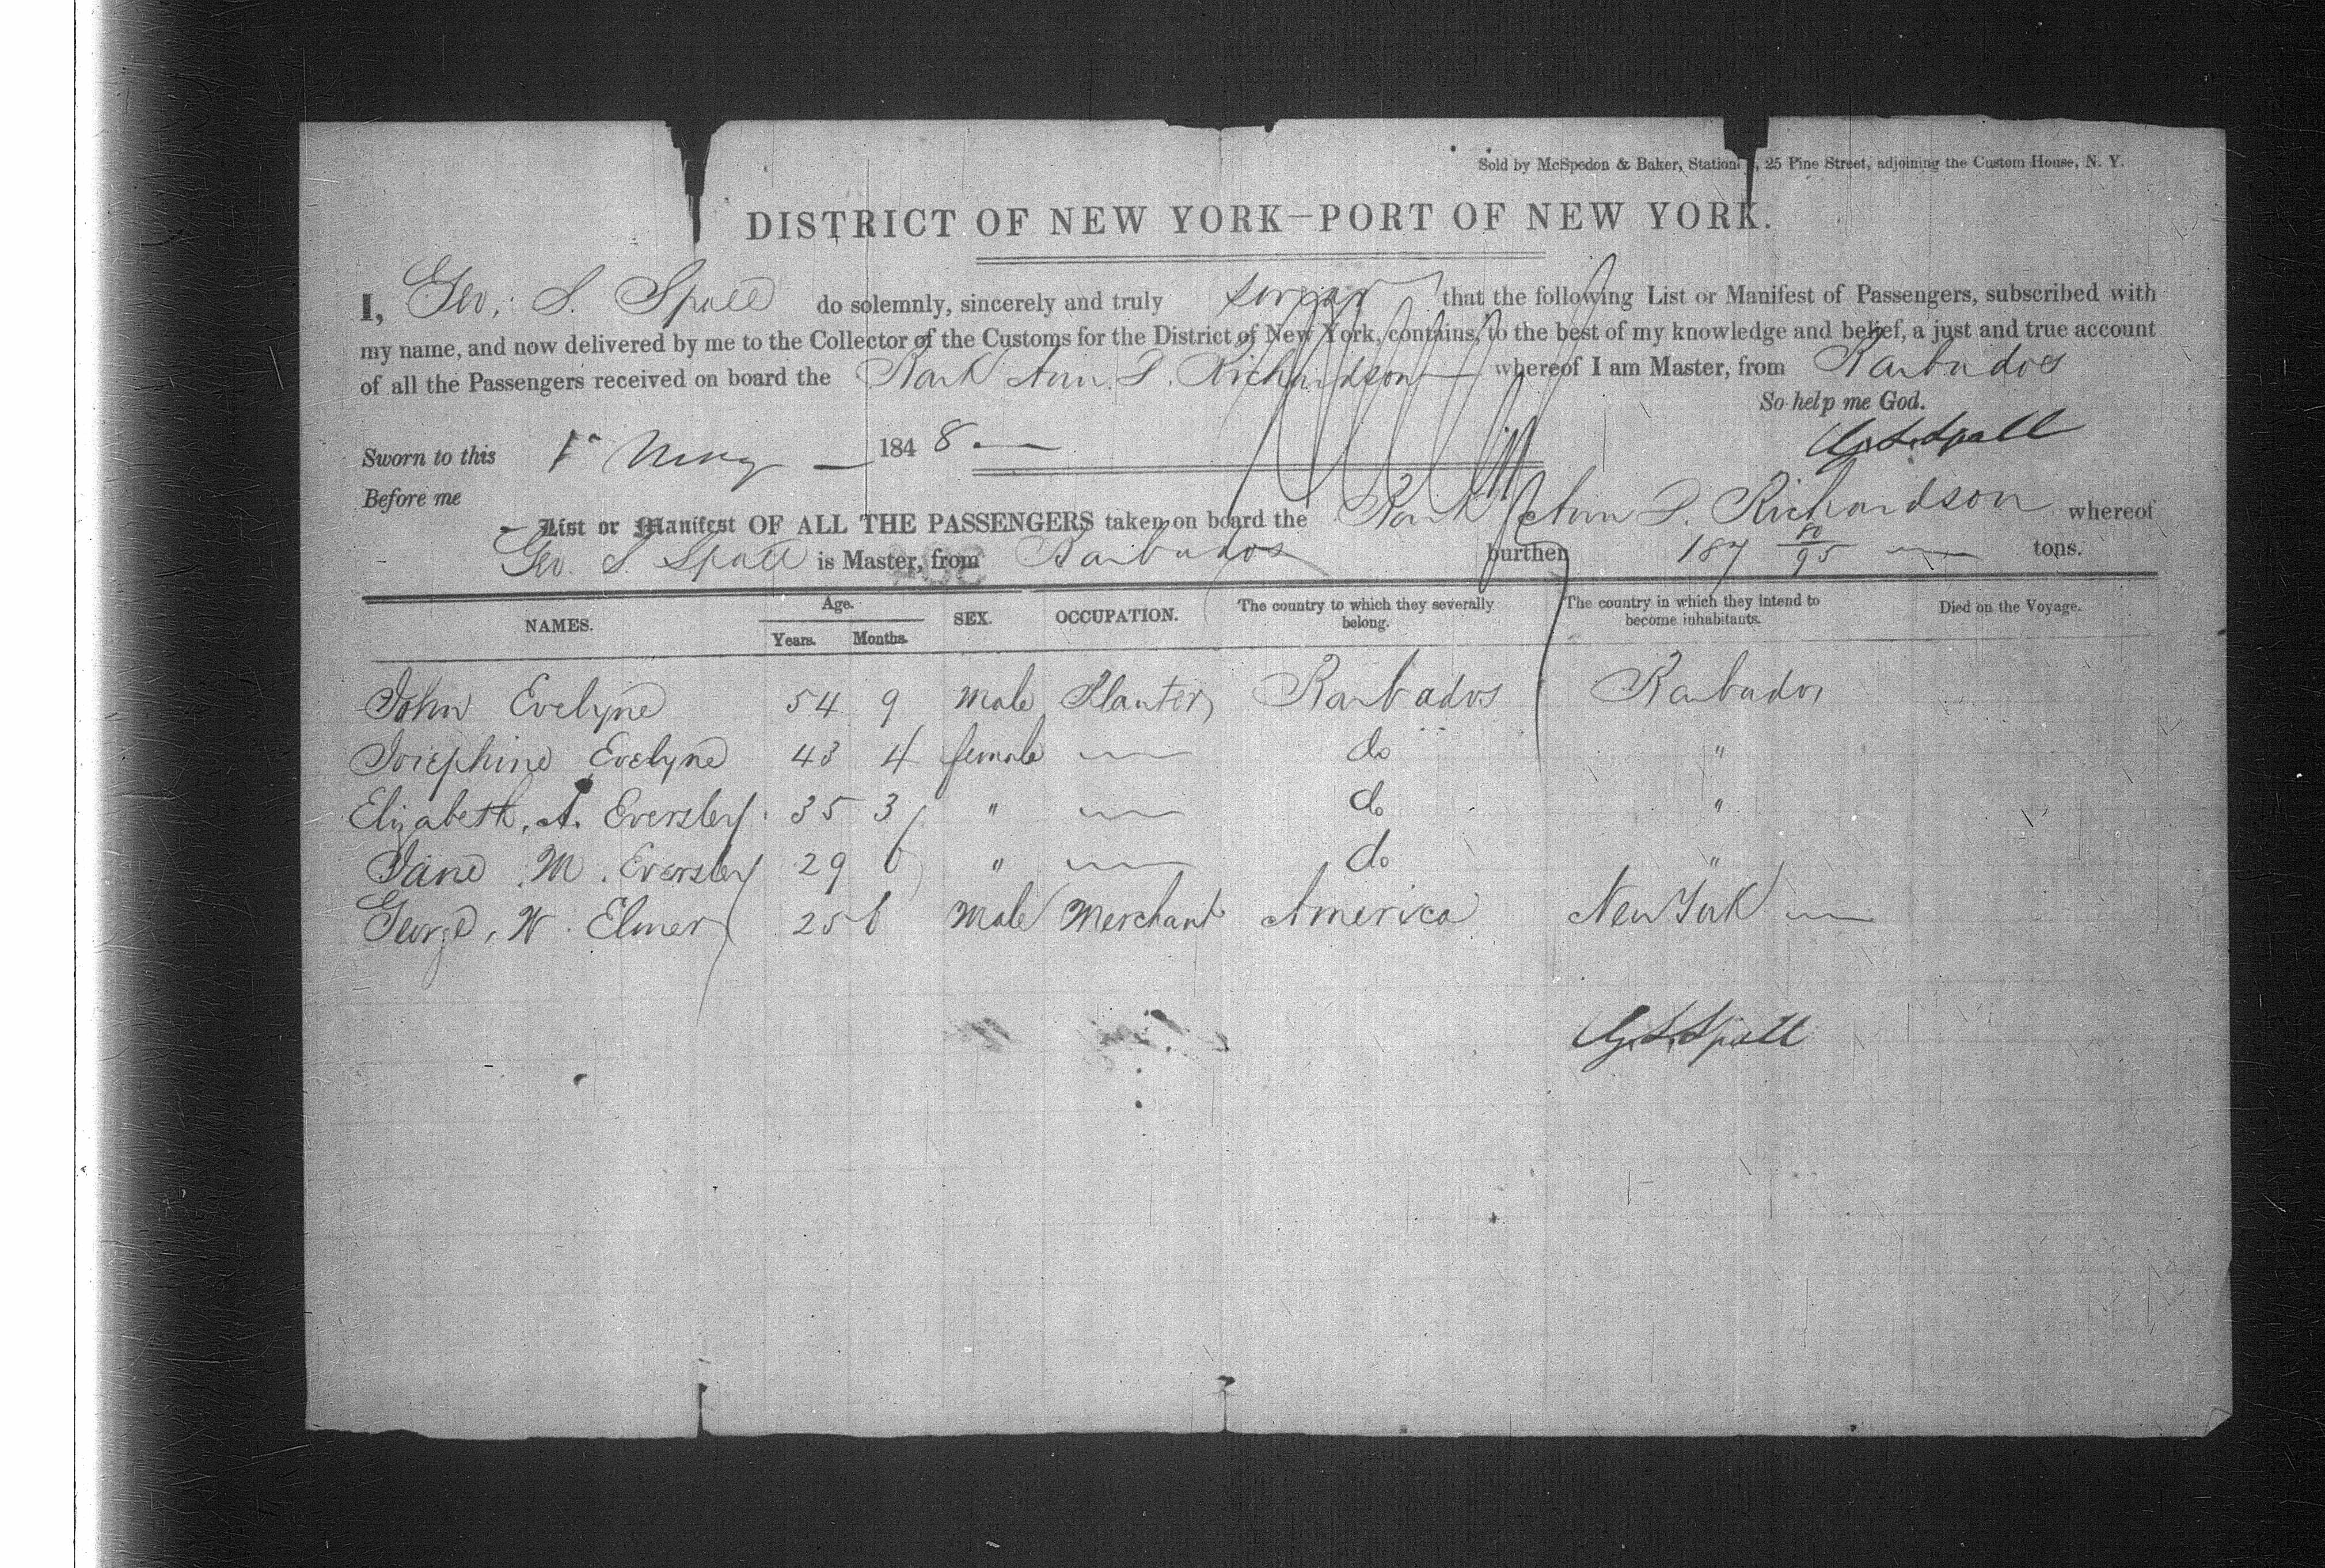 Sold by McSpedon & Baker, Station , 25 Pine Street, adjoining the Custom House, N. Y.
DISTRICT OF NEW YORK—PORT OF NEW YORK.
I, Geo: S. Spall do solemnly, sincerely and truly swear that the following List or Manifest of Passengers, subscribed with
my name, and now delivered by me to the Collector of the Customs for the District of New York, contains, to the best of my knowledge and belief, a just and true account
of all the Passengers received on board the Bark Ann. D. Richardson whereof I am Master, from Barbados
So help me God.
Sworn to this 1st May 1848 G. S. Spall
Before me
List or Manifest OF ALL THE PASSENGERS taken on board the Bark Ann D. Richardson whereof
Geo. S. Spall is Master, from Barbados burthen 187 80/95 tons.
NAMES. Age. Years. Months. SEX. OCCUPATION. The country to which they severally belong. The country in which they intend to become inhabitants. Died on the Voyage.
John Evelyne 54 9 Male Planter Barbados Barbados
Josephine Evelyne 43 4 female — do "
Elizabeth. A. Eversley. 35 3 " — do "
Jane M. Eversley 29 6 " — do "
George. W. Elmer 25 6 Male Merchant America New York —
G. S. Spall